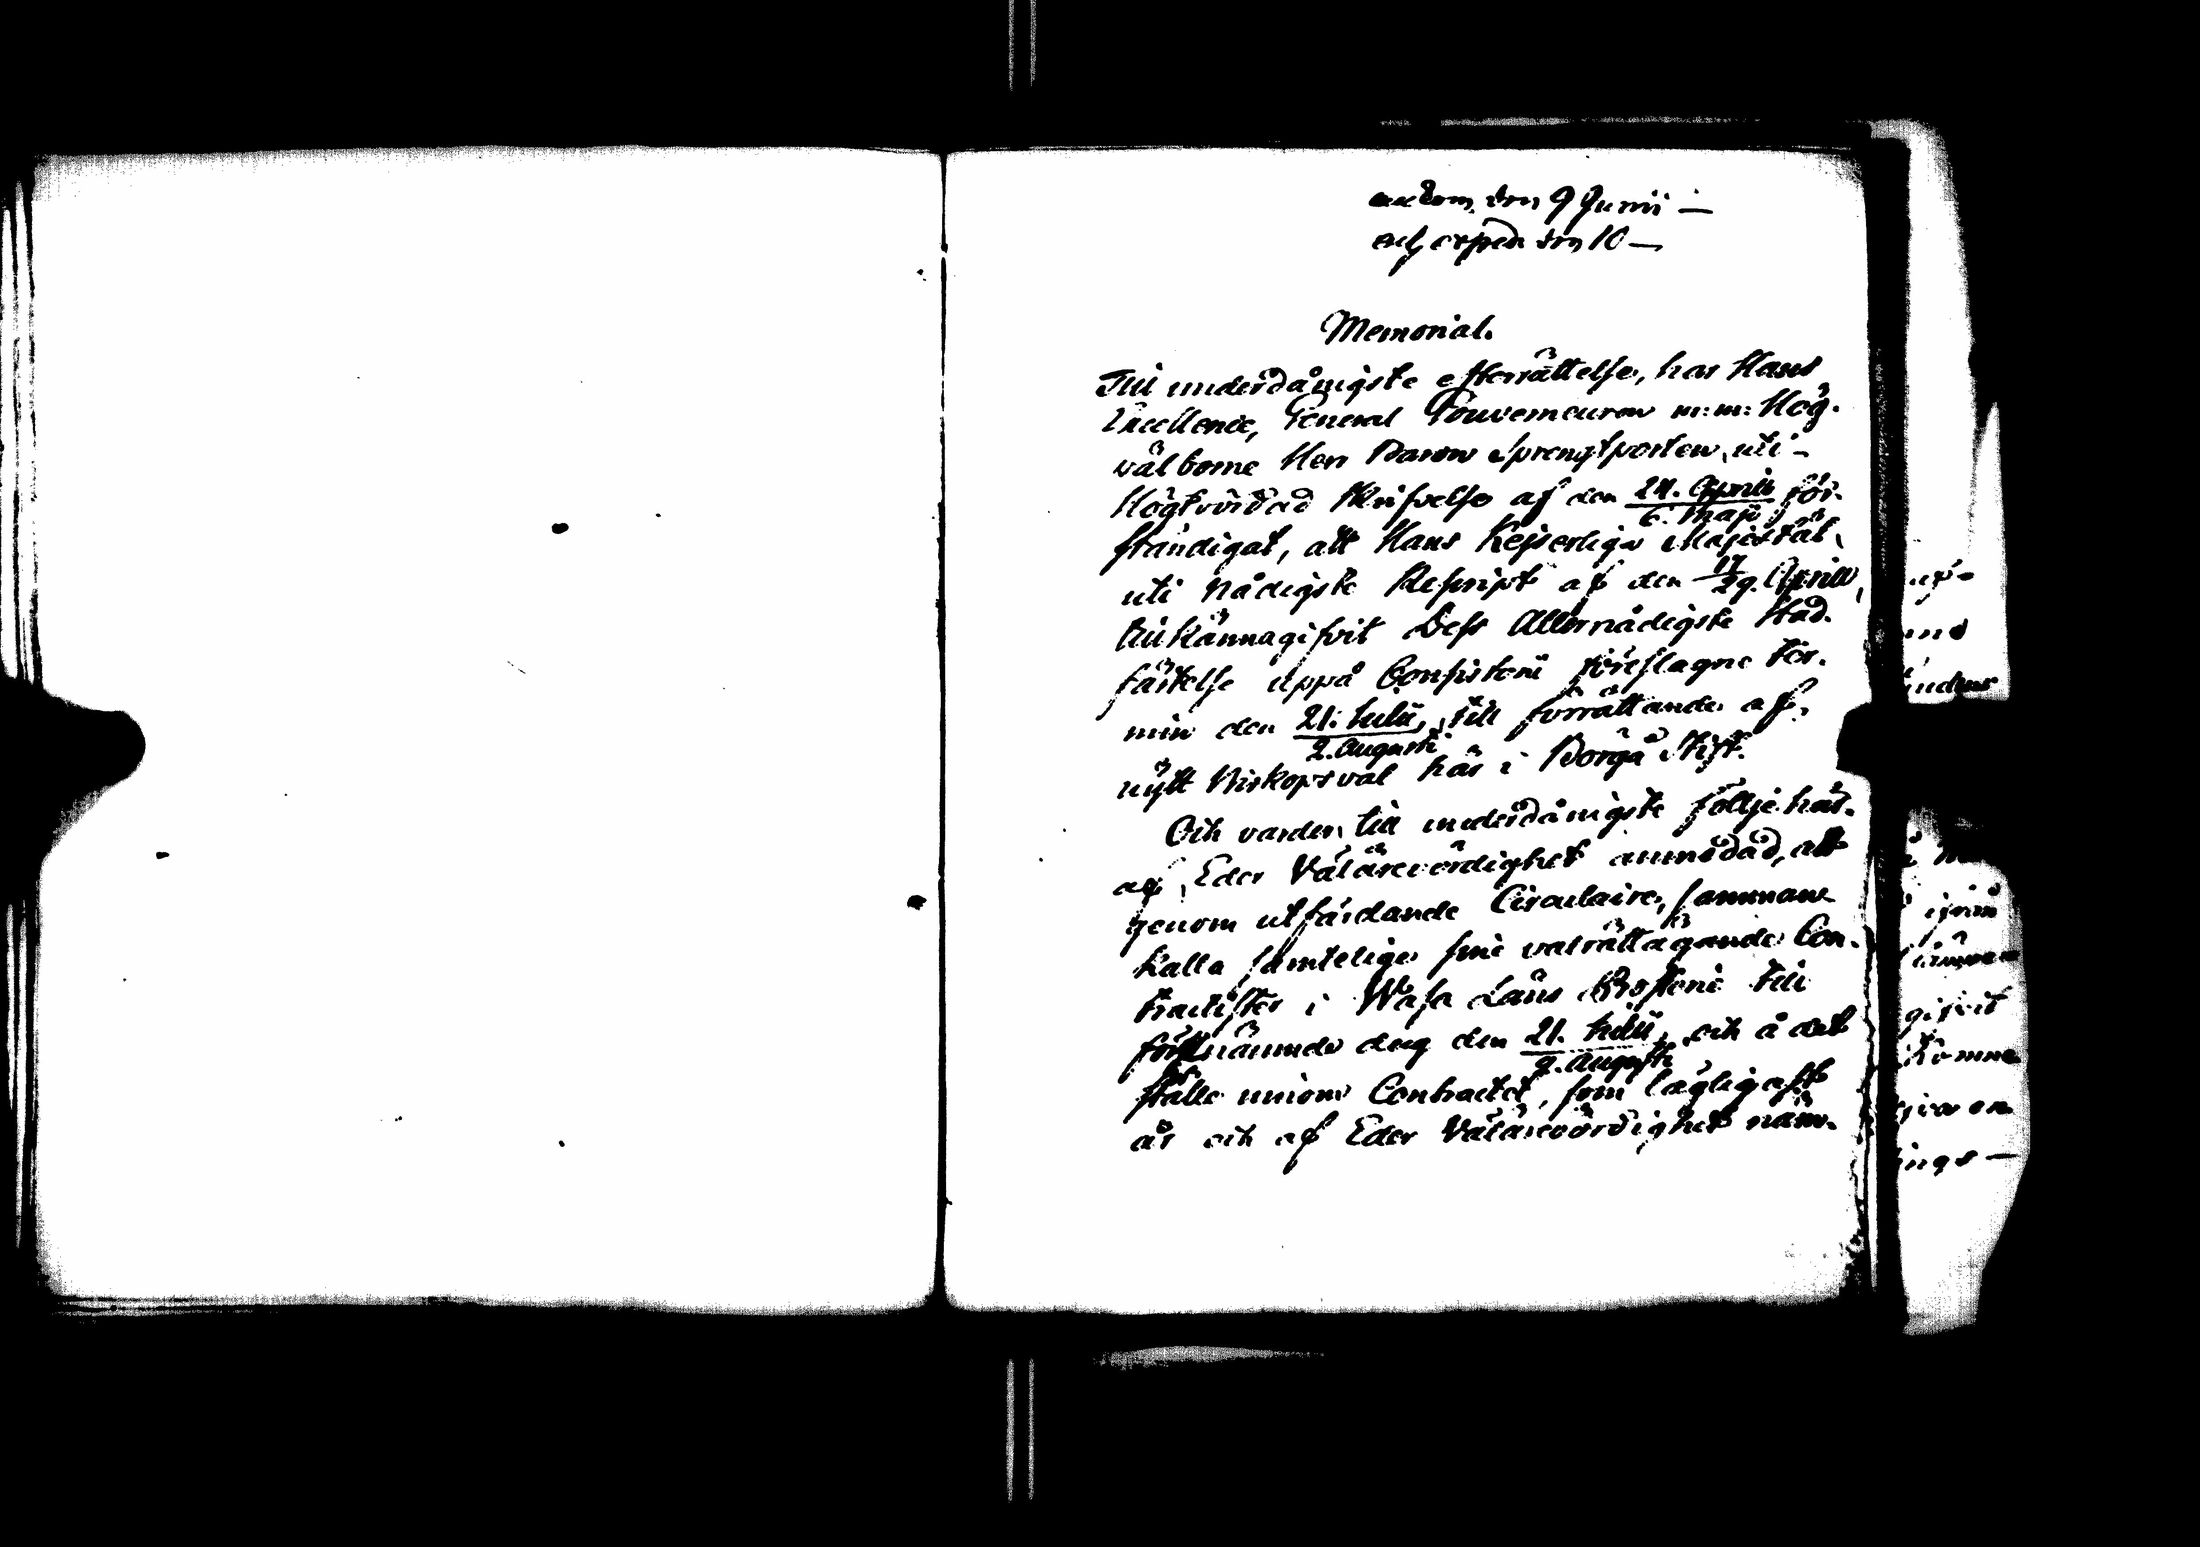 ankom den 9 Junii —
och exped. den 10 —
Memorial.
Till underdånigste efterrättelse, har Hans
Excellence, General Gouverneuren m: m: Hög-
välborne Herr Baron Sprengtporten, uti
Högtvördad Skrifvelse af den 24. Aprill för-
6. Maji
ständigat, att Hans Kejserliga Majestät,
uti nådigste Rescript af den 17/29. Aprill,
tillkännagifvit Dess Allernådigste Stad-
fästelse uppå Consistorii föreslagne ter-
min den 21. Julii, till förrättande af
2. Augusti
nytt Biskopsval här i Borgå Stift.
Och varder, till underdånigste föllje häraf,
af Eder Välärevördighet anmodad, att
genom utfärdande Circulaire, samman-
kalla samtelige sine valrättägande Con-
tractister i Wasa Läns Prosteri till
förstnämnde dag den 21. Julii, och å det
2. Augusti
ställe inom Contractet, som lägligast
är och af Eder Välärevördighet näm-
ings —